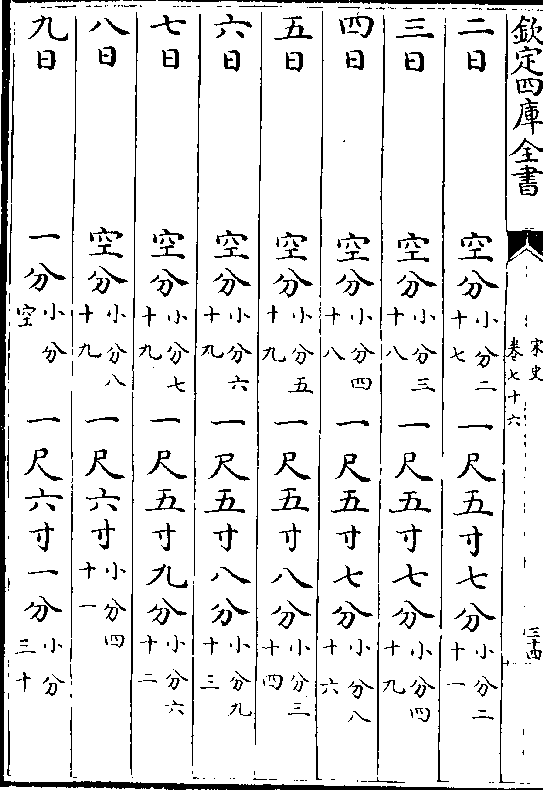 欽定四庫全書
宋史
卷七十六
三十四
二日 空分小分二十七 一尺五寸七分小分二十一
三日 空分小分三十八 一尺五寸七分小分四十九
四日 空分小分四十八 一尺五寸七分小分八十六
五日 空分小分五十九 一尺五寸八分小分三十四
六日 空分小分六十九 一尺五寸八分小分九十三
七日 空分小分七十九 一尺五寸九分小分六十二
八日 空分小分八十九 一尺六寸小分四十一
九日 一分小分空 一尺六寸一分小分三十